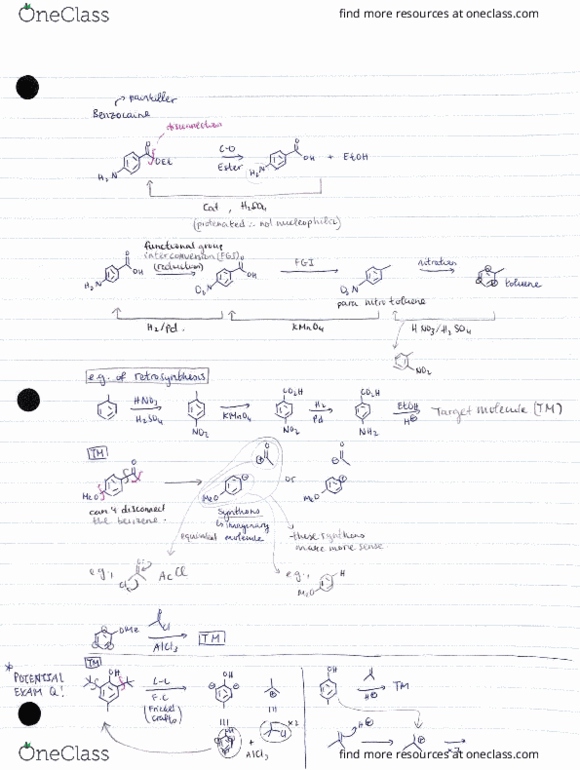 OneClass
find more resources at oneclass.com
painkiller
Benzocaine
disconnection
O
OEt
H2N
C-O
Ester
O
OH + EtOH
H2N
Cat , H2SO4
(protonated ∴ not nucleophilic)
functional group
interconversion (FGI)
(reduction)
FGI
nitration
H2N
OH
O2N
OH
O2N
para nitro toluene
toluene
H2/Pd.
KMnO4
HNO3/H2SO4
NO2
e.g. of retrosynthesis
HNO3
H2SO4
NO2
KMnO4
CO2H
NO2
H2
Pd
CO2H
NH2
EtOH
H⊕
Target molecule (TM)
TM
O
MeO
MeO
or
MeO
can't disconnect
the benzene.
Synthons
↳ imaginary
equivalent molecule
-these synthons
make more sense.
e.g.,
Cl
AcCl
e.g.,
H
MeO
OMe
Cl
AlCl3
TM
* POTENTIAL
EXAM Q!
TM
OH
F.C
(Friedel
Crafts)
OH
OH
H⊕
TM
+
AlCl3
Cl
x2
H⊕
OneClass
find more resources at oneclass.com